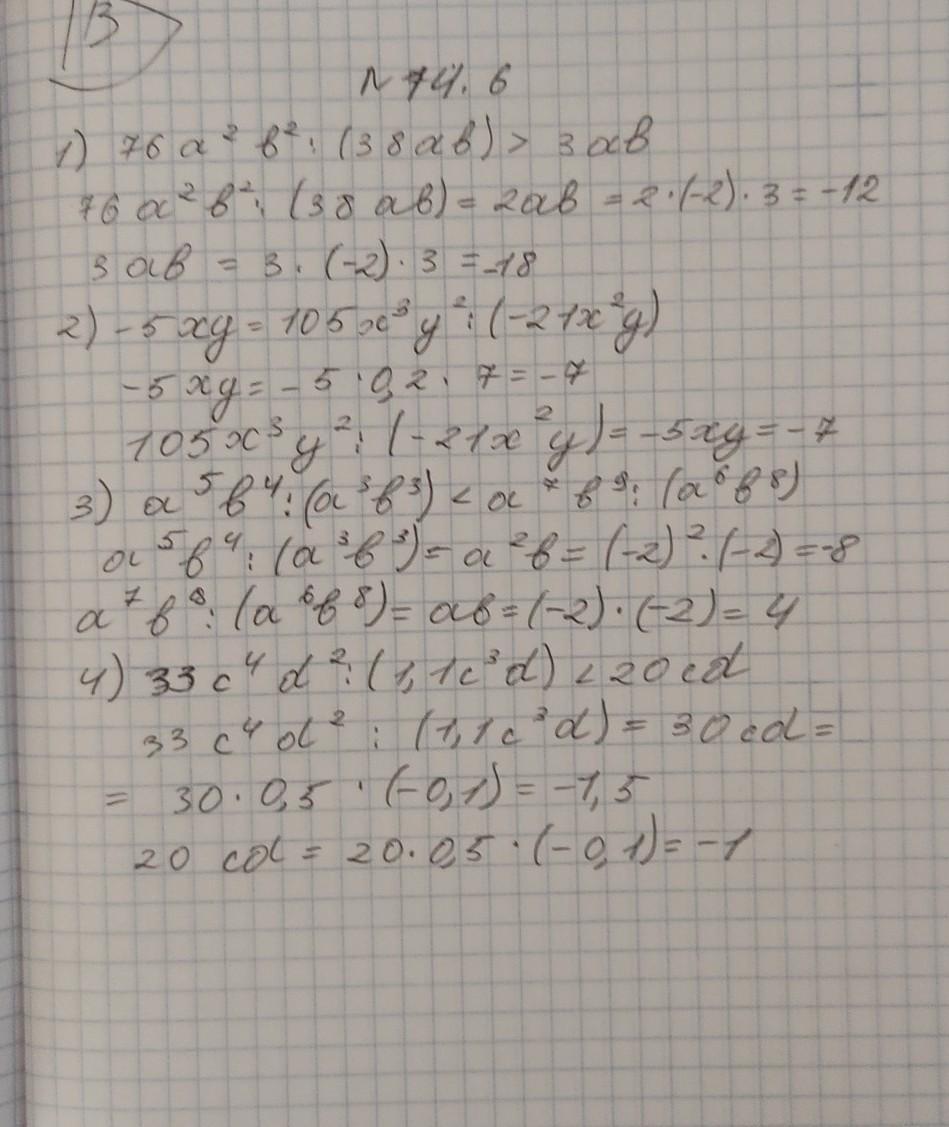 В
N 74. 6
1) 76 a² b² : (38ab) > 3ab
76 a² b² : (38 ab) = 2ab = 2·(-2)·3 = -12
3 ab = 3 · (-2) · 3 = -18
2) -5xy = 105x³y² : (-21x²y)
-5xy = -5 · 0,2 · 7 = -7
105x³y² : (-21x²y) = -5xy = -7
3) a⁵b⁴ : (a³b³) < a⁷b⁹ : (a⁶b⁸)
a⁵b⁴ : (a³b³) = a²b = (-2)²·(-2) = -8
a⁷b⁹ : (a⁶b⁸) = ab = (-2)·(-2) = 4
4) 33 c⁴ d² : (1,1c³d) < 20cd
33 c⁴ d² : (1,1c³d) = 30cd =
= 30 · 0,5 · (-0,1) = -1,5
20 cd = 20 · 0,5 · (-0,1) = -1